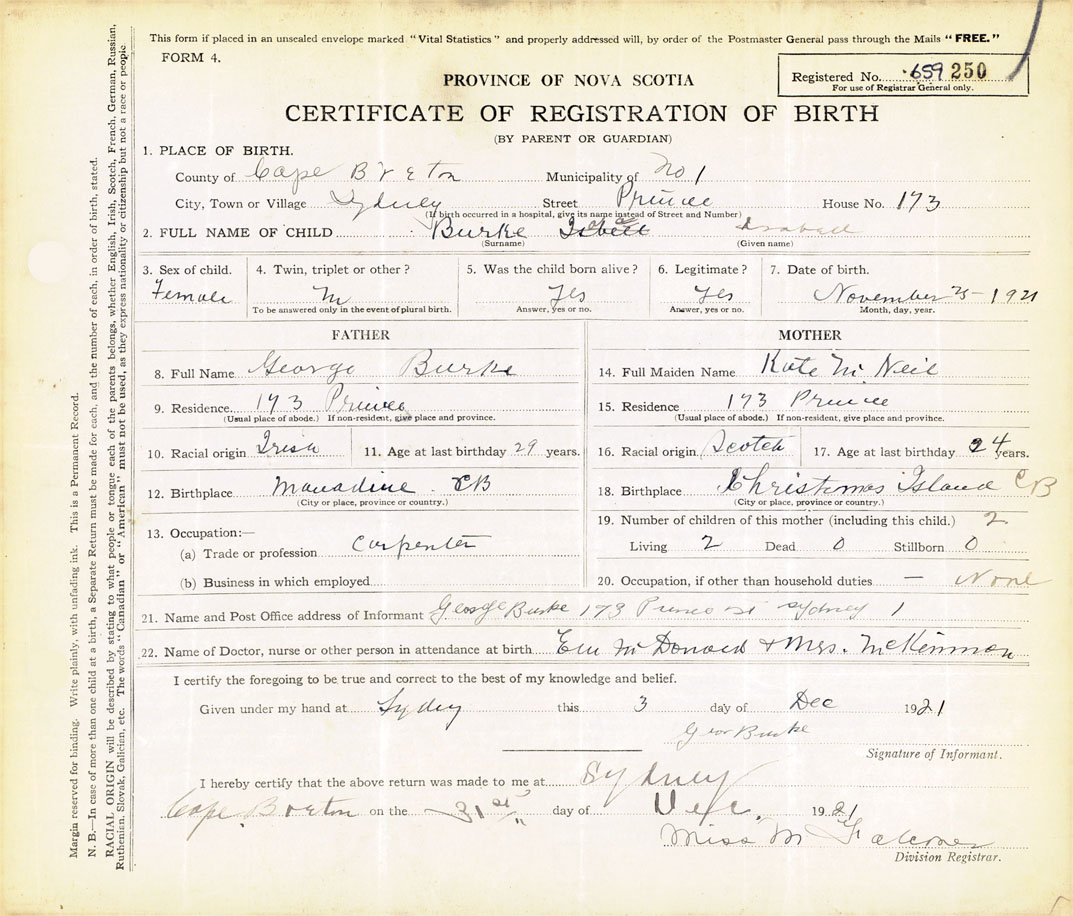 This form if placed in an unsealed envelope marked "Vital Statistics" and properly addressed will, by order of the Postmaster General pass through the Mails "FREE."
FORM 4.
Registered No. 659 250
For use of Registrar General only.
PROVINCE OF NOVA SCOTIA
CERTIFICATE OF REGISTRATION OF BIRTH
(BY PARENT OR GUARDIAN)
1. PLACE OF BIRTH.
County of Cape Breton Municipality of No 1
City, Town or Village Sydney Street Prince House No. 173
(If birth occurred in a hospital, give its name instead of Street and Number)
2. FULL NAME OF CHILD Burke Isabell
(Surname) (Given name)
3. Sex of child. 4. Twin, triplet or other? 5. Was the child born alive? 6. Legitimate? 7. Date of birth.
Female Yes Yes November 25 - 1921
To be answered only in the event of plural birth. Answer, yes or no. Answer, yes or no. Month, day, year.
FATHER
8. Full Name George Burke
9. Residence 173 Prince
(Usual place of abode.) If non-resident, give place and province.
10. Racial origin Irish 11. Age at last birthday 29 years.
12. Birthplace CB
(City or place, province or country.)
13. Occupation:—
(a) Trade or profession Carpenter
(b) Business in which employed
MOTHER
14. Full Maiden Name Kate McNeil
15. Residence 173 Prince
(Usual place of abode.) If non-resident, give place and province.
16. Racial origin Scotch 17. Age at last birthday 24 years.
18. Birthplace Christmas Island CB
(City or place, province or country.)
19. Number of children of this mother (including this child.) 2
Living 2 Dead 0 Stillborn 0
20. Occupation, if other than household duties — None
21. Name and Post Office address of Informant George Burke 173 Prince st Sydney
22. Name of Doctor, nurse or other person in attendance at birth McDonald + Mrs. McKinnon
I certify the foregoing to be true and correct to the best of my knowledge and belief.
Given under my hand at Sydney this 3 day of Dec 1921
Geor Burke
Signature of Informant.
I hereby certify that the above return was made to me at Sydney
Cape Breton on the 31st day of Dec. 1921
Miss M Falconer
Division Registrar.
Margin reserved for binding. Write plainly, with unfading ink. This is a Permanent Record.
N. B.—In case of more than one child at a birth, a Separate Return must be made for each, and the number of each, in order of birth, stated.
RACIAL ORIGIN will be described by stating to what people or tongue each of the parents belongs, whether English, Irish, Scotch, French, German, Russian,
Ruthenian, Slovak, Galician, etc. The words "Canadian" or "American" must not be used, as they express nationality or citizenship but not a race or people.